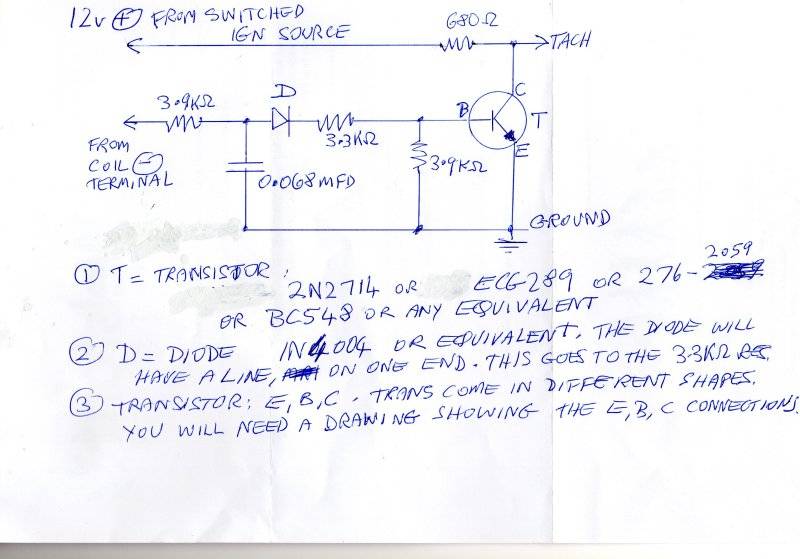 12v ⊕ FROM SWITCHED
IGN SOURCE
680Ω
TACH
3.9KΩ
D
3.3KΩ
B
C
T
E
FROM
COIL ⊖
TERMINAL
0.068MFD
3.9KΩ
GROUND
① T = TRANSISTOR:
2N2714 OR ECG289 OR 276-2059
OR BC548 OR ANY EQUIVALENT
② D = DIODE 1N4004 OR EQUIVALENT. THE DIODE WILL
HAVE A LINE, ON ONE END. THIS GOES TO THE 3.3KΩ RES.
③ TRANSISTOR: E, B, C. TRANS COME IN DIFFERENT SHAPES.
YOU WILL NEED A DRAWING SHOWING THE E, B, C CONNECTIONS.